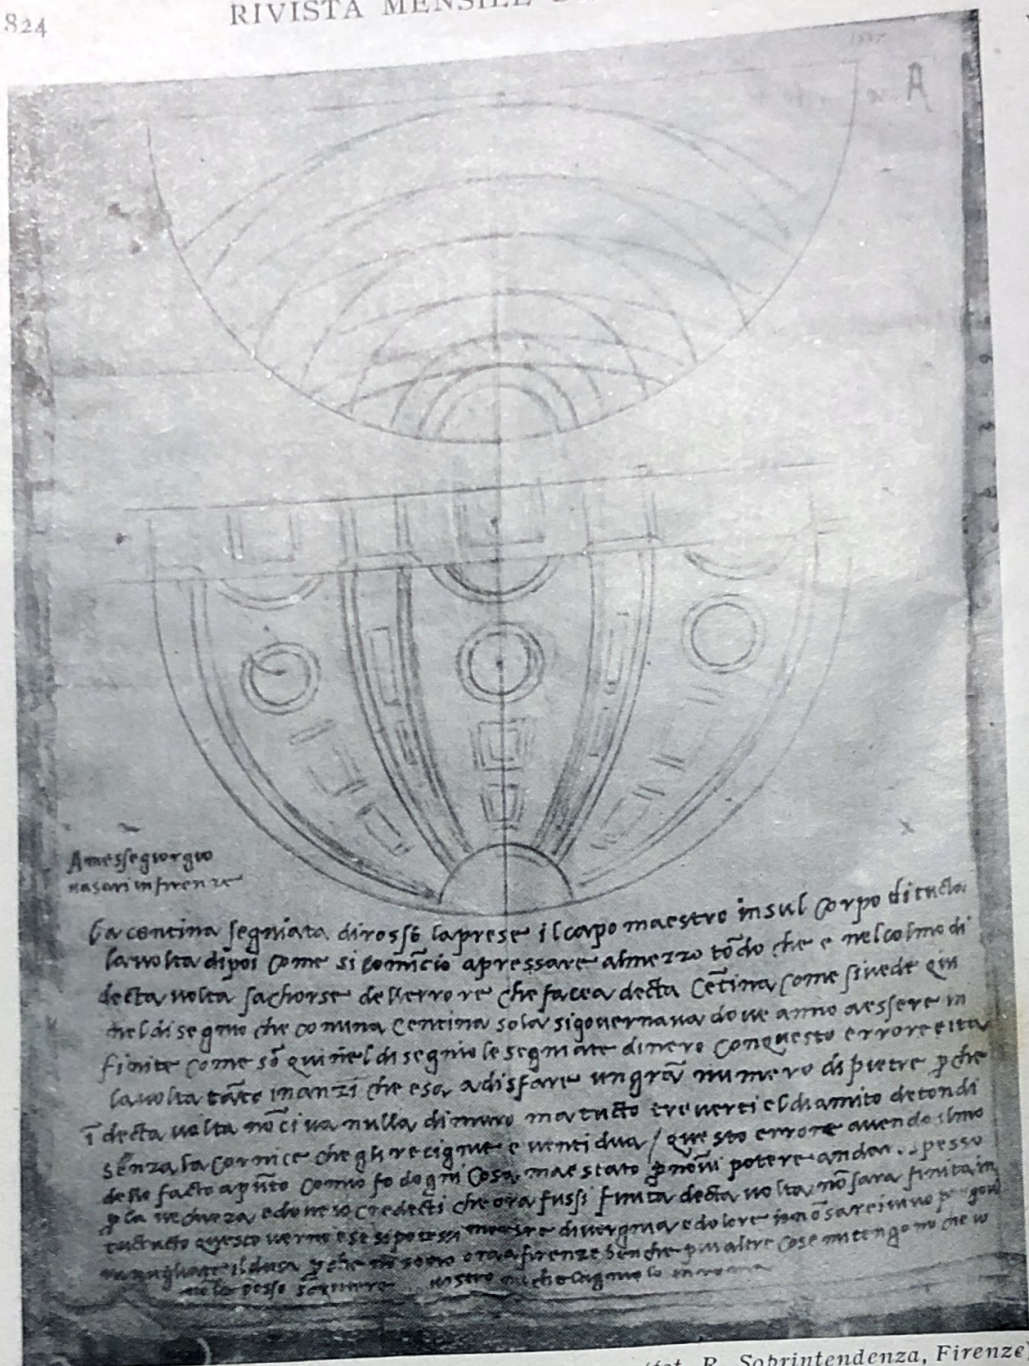 824
RIVISTA MENSILE
A
A messe giorgio
vasari in firenze
La centina segniata di rosso la prese il capo maestro in sul corpo di tucta
la volta dipoi come si comīcio a pressare al mezzo tōdo che e nel colmo di
decta volta sachorse dell errore che facea decta cētina come si vede qui
nel disegnio che con una centina sola si governava dove anno a essere in
finite come sō qui nel disegnio le segniate di nero con questo errore e ita
la volta tāto inanzi che e s a a disfare un grā numero di pietre p che
ī decta volta nō ci va nulla di muro ma tucto treverti el diamito de tondi
senza la cornice che gli recignie e venti dua / questo errore avendo il mo
dello facto apūto como fo d ogni cosa stato p nō vi potere andar spesso
p la vechieza e dove io credecti che ora fussi finita decta volta nō sara finita in
tucto questo verno e se si potessi morire di vergnia e dolore io nō sarei vivo
il duca p che nō sono ora a firenze ben che piu altre cose mi tengono che io
nō le posso vostro michelagniolo in roma
R. Soprintendenza, Firenze